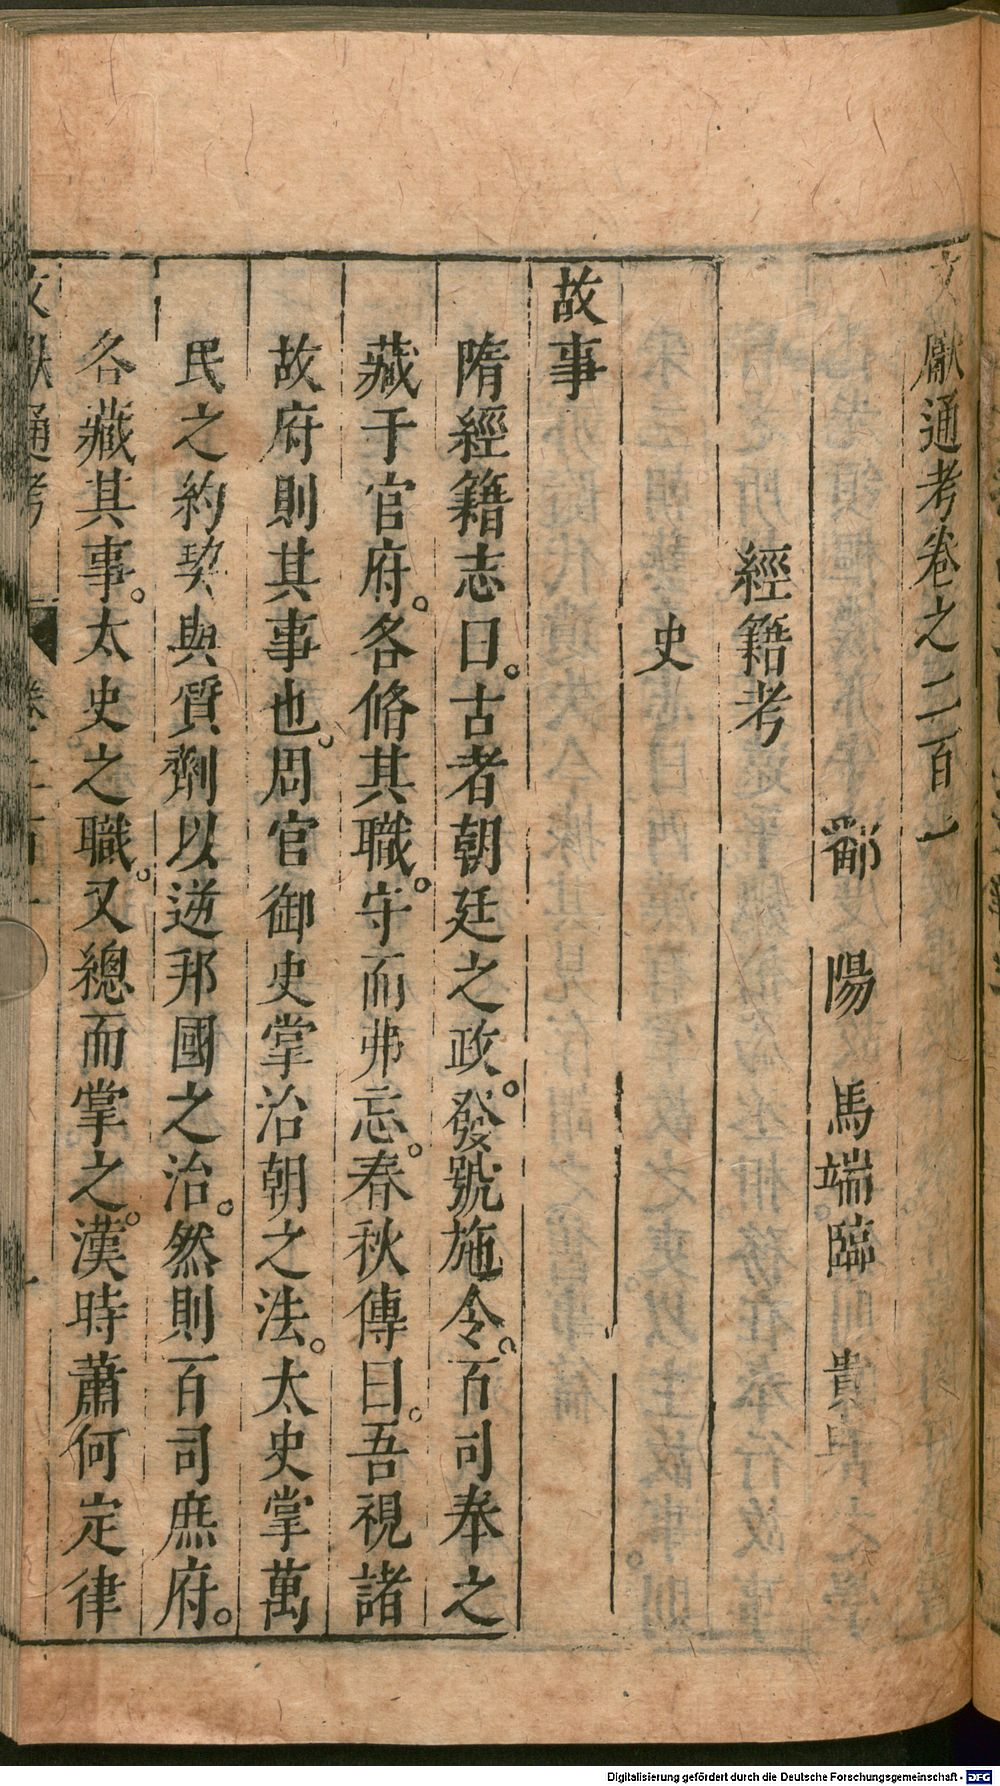 文獻通考卷之二百一
鄱陽馬端臨貴與
經籍考
史
故事
隋經籍志曰。古者朝廷之政。發號施令。百司奉之
藏于官府。各脩其職。守而弗忘。春秋傳曰。吾視諸
故府則其事也。周官御史掌治朝之法。太史掌萬
民之約契與質劑以逆邦國之治。然則百司庶府。
各藏其事。太史之職。又總而掌之。漢時蕭何定律
Digitalisierung gefördert durch die Deutsche Forschungsgemeinschaft - DFG